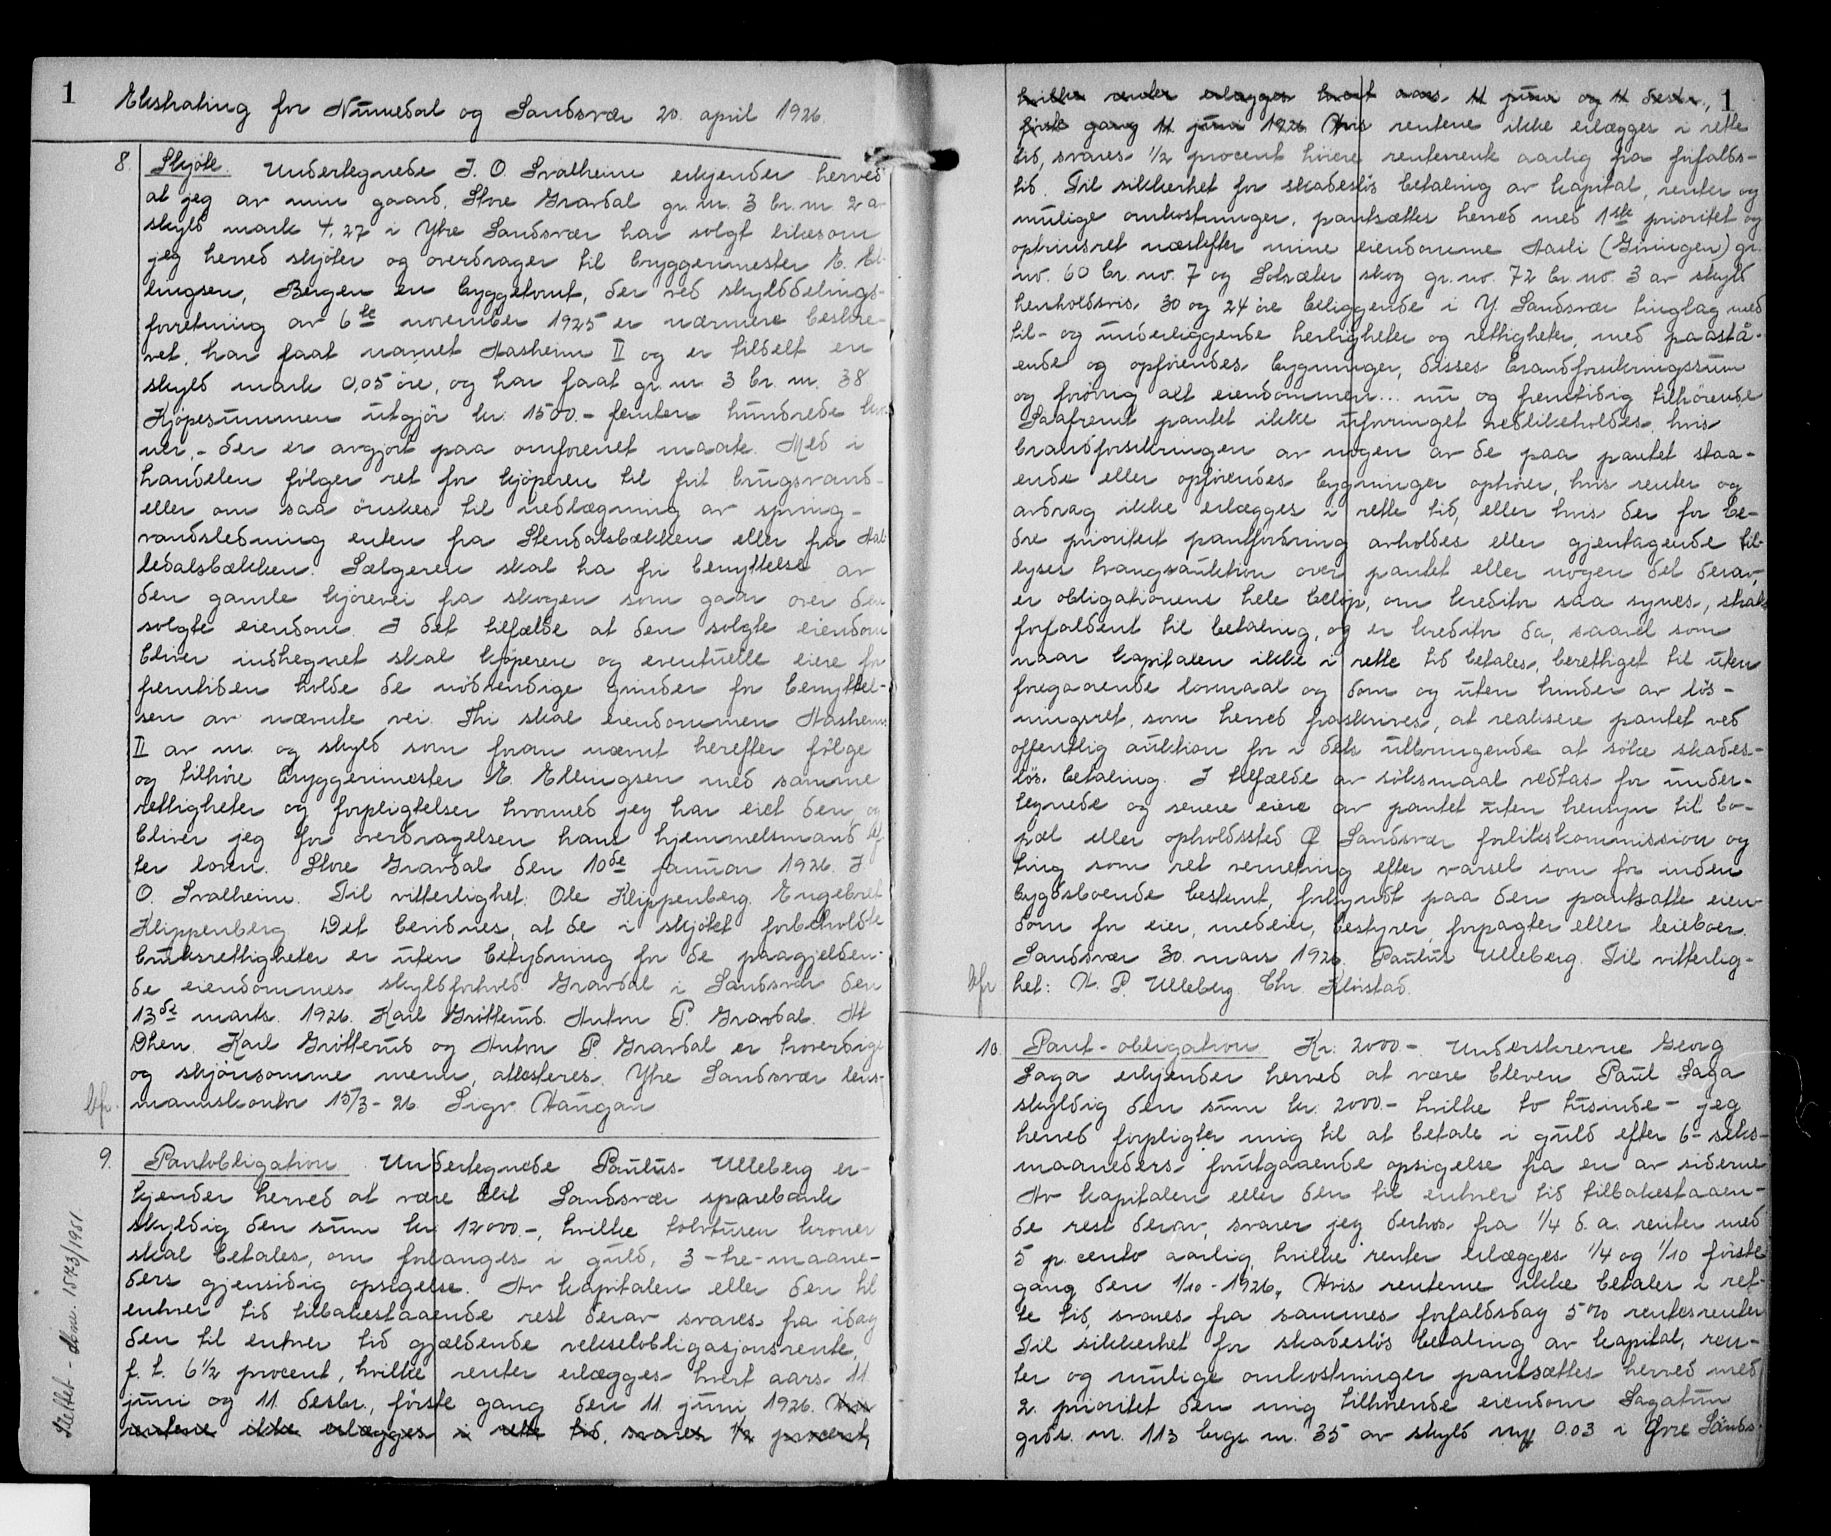 1
Ekstrating for Numedal og Sandsvær 20. april 1926.
8. Skjøte. Undertegnede J. O. Svalheim erkjender herved
at jeg av min gaard, Store Gravdal gr. nr. 3 br. nr. 2 a
skyld mark 4,27 i Ytre Sandsvær har solgt likesom
jeg herved skjøter og overdrager til byggermester E. El-
lingsen, Bergen en byggetomt, der ved skylddelings-
forretning av 6te november 1925 er nærmere beskre-
vet, har faat navnet Aasheim II og er tildelt en
skyld mark 0,05 øre, og har faat gr. nr 3 br. nr. 38
Kjøpesummen utgjør kr. 1500.- femten hundrede kro-
ner,- der er avgjort paa omforenet maate. Med i
handelen følger ret for kjøperen til frit brugsvand-
eller om saa ønskes til nedlægning av spring-
vandsledning enten fra Stendalsbækken eller fra
ledalsbækken. Sælgeren skal ha fri benyttelse av
den gamle kjørevei fra skogen som gaar over den
solgte eiendom. I det tilfælde at den solgte eiendom
bliver indhegnet skal kjøperen og eventuelle eiere for
fremtiden holde de nødvendige grinder for benyttel-
sen av nævnte vei. Thi skal eiendommen Aasheim
II av nr. og skyld som foran nævnt herefter følge
og tilhøre byggermester E. Ellingsen med samme
rettigheter og forpligtelser hvormed jeg har eiet den og
bliver jeg for overdragelsen hans hjemmelsmand ef-
ter loven. Store Gravdal den 10de januar 1926. J.
O. Svalheim. Til vitterlighet: Ole Klippenberg. Engebret
Klippenberg. Det bevidnes, at de i skjøtet forbeholdte
bruksrettigheter er uten betydning for de paagjelden-
de eiendommes skyldforhold. Gravdal i Sandsvær den
13de marts 1926. Karl Grøtterud. Anton P. Gravdal. At
Dhrr. Karl Grøtterud og Anton P. Gravdal er troverdige
og skjønsomme menn, attesteres. Ytre Sandsvær lens-
mannskontor 15/3-26. Sigv. Haugan
bfr.
9. Pantobligation. Undertegnede Paulus Ulleberg er-
kjender herved at være blit Sandsvær sparebank
skyldig den sum kr. 12000-, hvilke tolvtusen kroner
skal betales, om forlanges i guld, 3-tre-maane-
ders gjensidig opsigelse. Av kapitalen eller den til
enhver tid tilbakestaaende rest derav svares fra idag
den til enhver tid gjældende vekselobligasjonsrente,
f. t. 6 1/2 procent, hvilke renter erlægges hvert aars 11.
juni og 11. desbr., første gang den 11 juni 1926. Hvis
rentene ikke erlægges i rette tid, svares 1/2 procent
Slettet - dbnr. 1573/1951
1
hvilke renter erlægges hvert aars 11 juni og 11 desbr,
første gang 11 juni 1926 Hvis rentene ikke erlægges i rette
tid, svares 1/2 procent høiere rentesrente aarlig fra forfalds-
tid. Til sikkerhet for skadesløs betaling av kapital, renter og
mulige omkostninger, pantsættes herved med 1ste prioritet og
optrinsret næstefter mine eiendomme Aasli (Gruingen) gr.
no. 60 br. no. 7 og Solsæter skog gr. no. 72 br. no. 3 av skyld
henholdsvis 30 og 24 øre beliggende i Y. Sandsvær tinglag med
til- og underliggende herligheter og rettigheter, med paastå-
ende og opførendes bygninger, disses brandforsikringssum
og forøvrig alt eiendommen... nu og fremtidig tilhørende
Saafremt pantet ikke uforringet vedlikeholdes, hvis
brandforsikringen av nogen av de paa pantet staa-
ende eller opførendes bygninger ophører, hvis renter og
avdrag ikke erlægges i rette tid, eller hvis der for be-
dre prioritert pantfordring avholdes eller gjentagende til-
lyses tvangsauktion over pantet eller nogen del derav,
er obligationens hele beløp, om kreditor saa synes, straks
forfaldent til betaling, og er kreditor da, saavel som
naar kapitalen ikke i rette tid betales, berettiget til uten
foregaaende lovmaal og dom og uten hinder av løs-
ningsret, som herved fraskrives, at realisere pantet ved
offentlig auktion for i dets utbringende at søke skades-
løs betaling. I tilfælde av søksmaal vedtas for under-
tegnede og senere eiere av pantet uten hensyn til bo-
pæl eller opholdssted Ø Sandsvær forlikskommission og
ting som ret verneting efter varsel som for inden
bygdsboende bestemt, forkyndt paa den pantsatte eien-
dom for eier, medeier, bestyrer, forpagter eller leieboer.
Sandsvær 30. mars 1926. Paulus Ulleberg. Til vitterlig-
het: H. P. Ulleberg. Chr. Kløvstad.
bfr
10. Pant-obligation Kr. 2000-. Underskrevne Georg
Saga erkjender herved at være bleven Paul Saga
skyldig den sum kr. 2000.- hvilke to tusinde- jeg
herved forpligter mig til at betale i guld efter 6- seks-
maaneders forutgaaende opsigelse fra en av siderne.
Av kapitalen eller den til enhver tid tilbakestaaen-
de rest derav, svarer jeg derhos fra 1/4 d. a. renter med
5 p. cento aarlig, hvilke renter erlægges 1/4 og 1/10 første
gang den 1/10-1926. Hvis renterne ikke betales i ret-
te tid, svares fra sammes forfaldsdag 5% rentesrenter
Til sikkerhet for skadesløs betaling av kapital, ren-
ter og mulige omkostninger pantsættes herved med
2. prioritet den mig tilhørende eiendom Sagatun
grds. nr. 113 brgs. nr. 35 av skyld 0.03 i Øvre Sands-